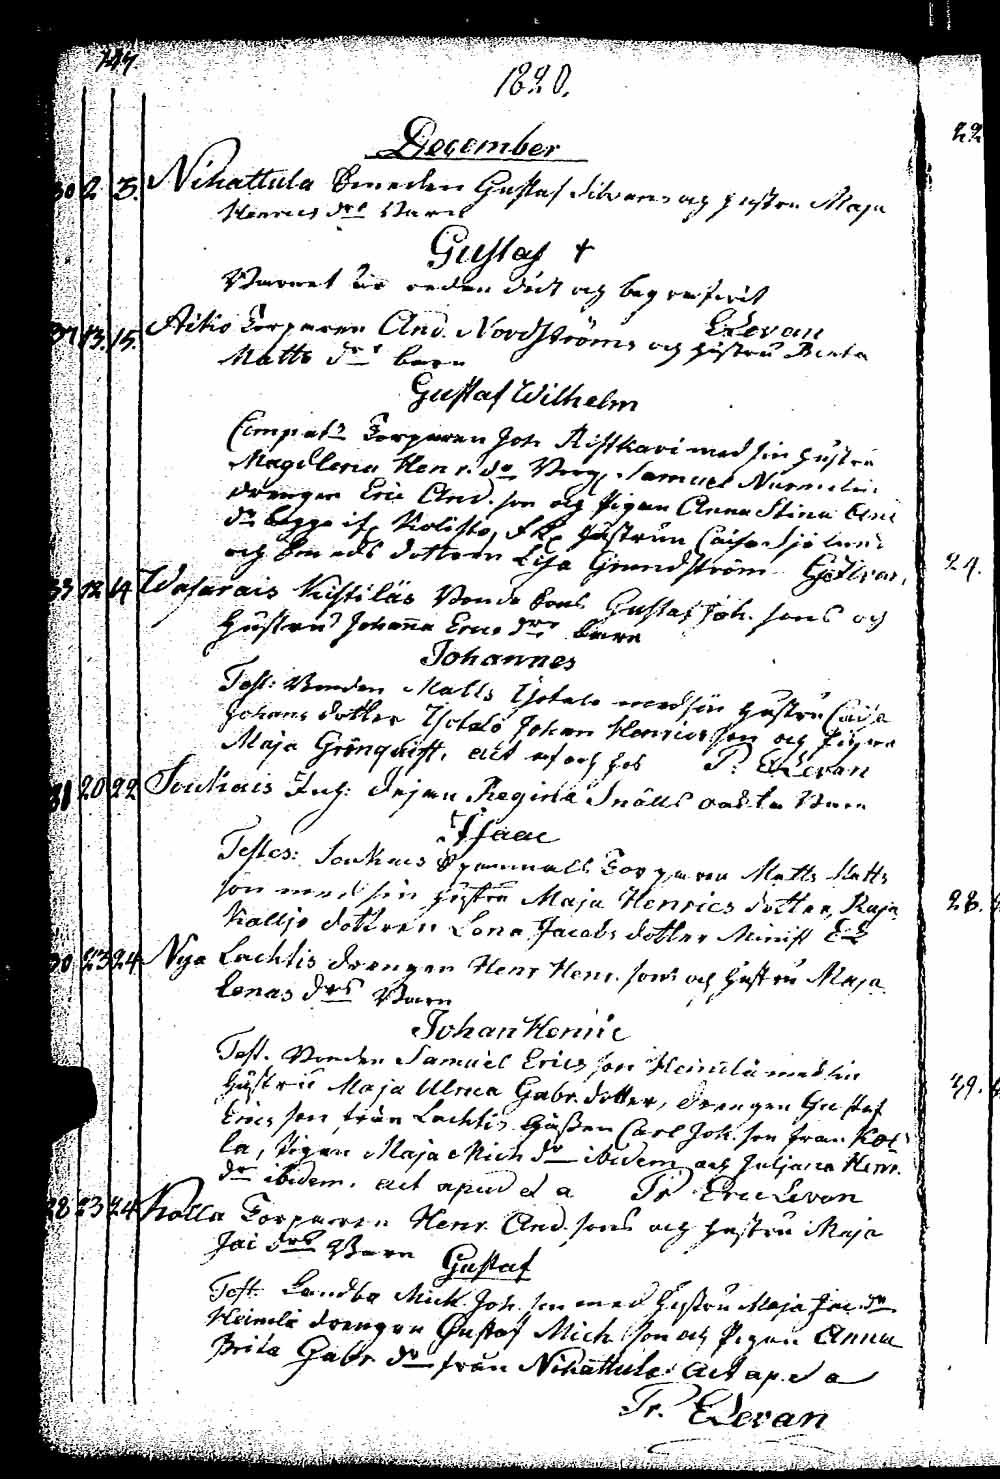 147
1820.
December
30 2 3. Nihattula Smeden Gustaf Silvens och hustru Maja
Henrics drs Barn
Gustaf +
Barnet är redan dödt och begrafvit
ELevan
37 13. 15. Aitio Torparen And. Nordströms och hustru Beata
Matts drs barn
Gustaf Wilhelm
Compatr Torparen Joh Ristkari med sin hustru
Magdlena Henr. dr Samuel
drengen Eric And. son och Pigan Anna Stina And
dr begge if. hustrun Caisa
och Smeds dottren Lisa Grundström
33 12 14 Wasarais Kistiläs Bonde Sons Gustaf Joh. sons och
Hustrus Johanna Erics drs barn
Johannes
Test: Bonden Matts Ysotalo med sin hustru Caisa
Johans dotter Ysotalo Johan Henrics son och Pigan
Maja Grönquist, act uts och hos P: ELevan
31 20 22 Soukais Inh: Pigan Regina Snälls oächta Barn
Isaac
Testes: Soukais Torparen Matts Matts
son med sin hustru Maja Henrics dotter,
dottren Lena Jacobs dotter Minist EL
30 23 24 Nya Lachtis drengen Henr Henr. sons och hustru Maja
Lenas drs Barn
Johan Henric
Test. Bonden Samuel Erics son Heinilä med sin
hustru Maja Ulrica Gabr. dotter, drengen Gustaf
Erics son från Lachtis Carl Joh. son från Kol
la, Pigan Maja Mich dr ibidem och Juliana Henr.
dr ibidem. act apud et a Pr Eric Levan
28 23 24 Kolla Torparen Henr. And. sons och hustru Maja
Jac drs Barn Gustaf
Test. Landbo Mick. Joh. son med hustru Maja Jac. dr
Heinilä drengen Gustaf Mich. son och Pigan Anna
Brita Gabr dr från Nihattula. Act ap. et a
Pr. ELevan
22
24.
28.
29.